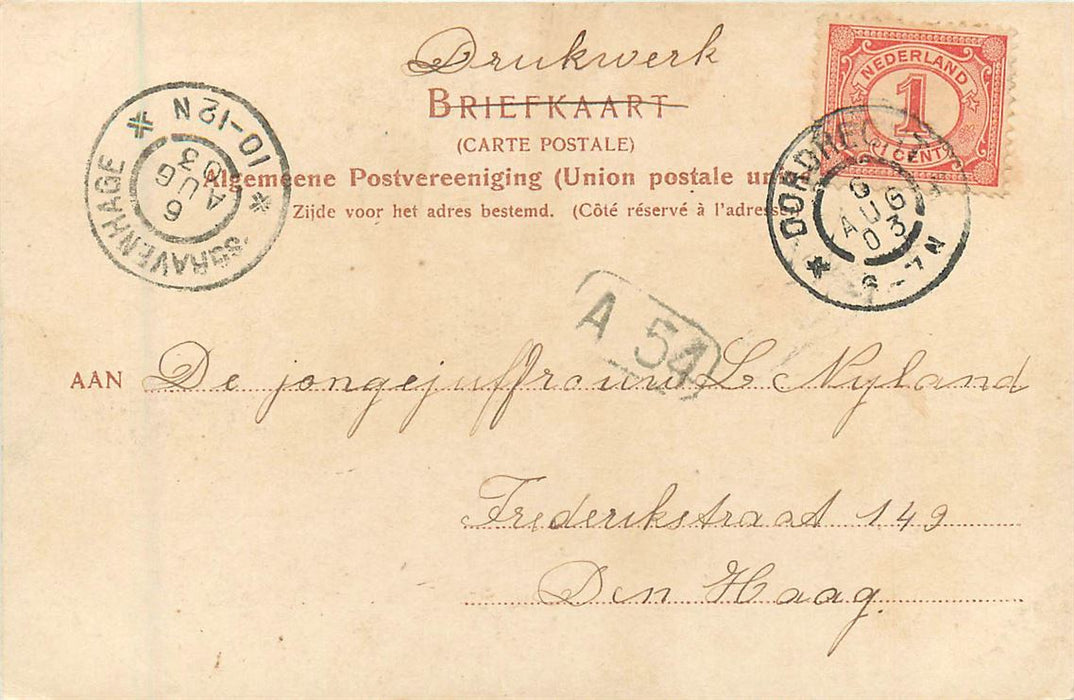 Drukwerk
BRIEFKAART
(CARTE POSTALE)
Algemeene Postvereeniging (Union postale un
Zijde voor het adres bestemd. (Côté réservé à l'adresse
NEDERLAND
1
1 CENT
'SGRAVENHAGE
10-12N
6
AUG
03
DORDRECHT
6
AUG
03
6-7N
A 54
AAN De jongejuffrouw L Nyland
Frederikstraat 149
Den Haag.